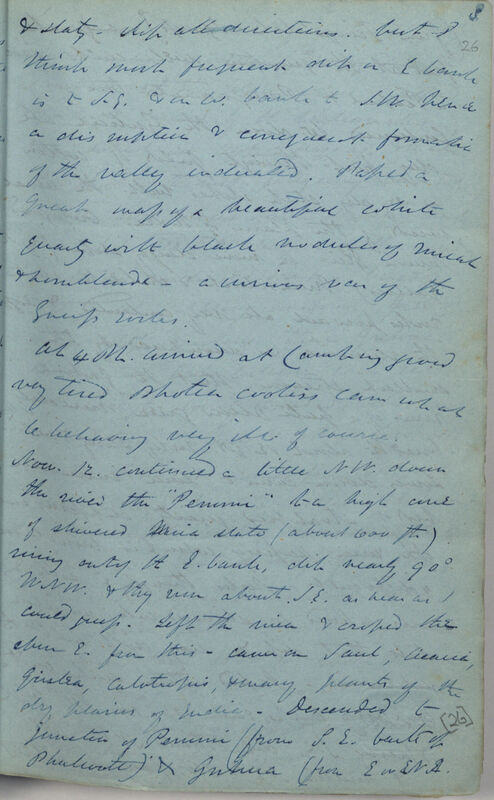 8
26
& slaty - dip all directions. but I
think most frequent dip on E bank
is to S.E. & on W. bank to S.W. hence
a disruption & consequent formation
of the valley indicated. Passed a
great mass of a beautiful white
Quartz with black nodules of mica
& hornblende - a curious var of the
Gneiss
At 4 P.M. arrived at Camping ground
very tired Bhotea coolies came up at
le behaving very ill. of course.
Nov. 12. continued a little N.W. down
the river the "Pemmi" to a high cone
of shivered Mica slate (about 600 ft)
rising out of the E. bank, dip nearly 90°
W.N.W. & they run about S.E. as near as I
could guess. Left the river & crossed the
E. from this - came on Saul, Acacia
Grislea, Calotropis, & many plants of the
dry plains of India - Descended to
junction of Pemmi (from S.E. back of
) & (from E or E.N.E.
[26]